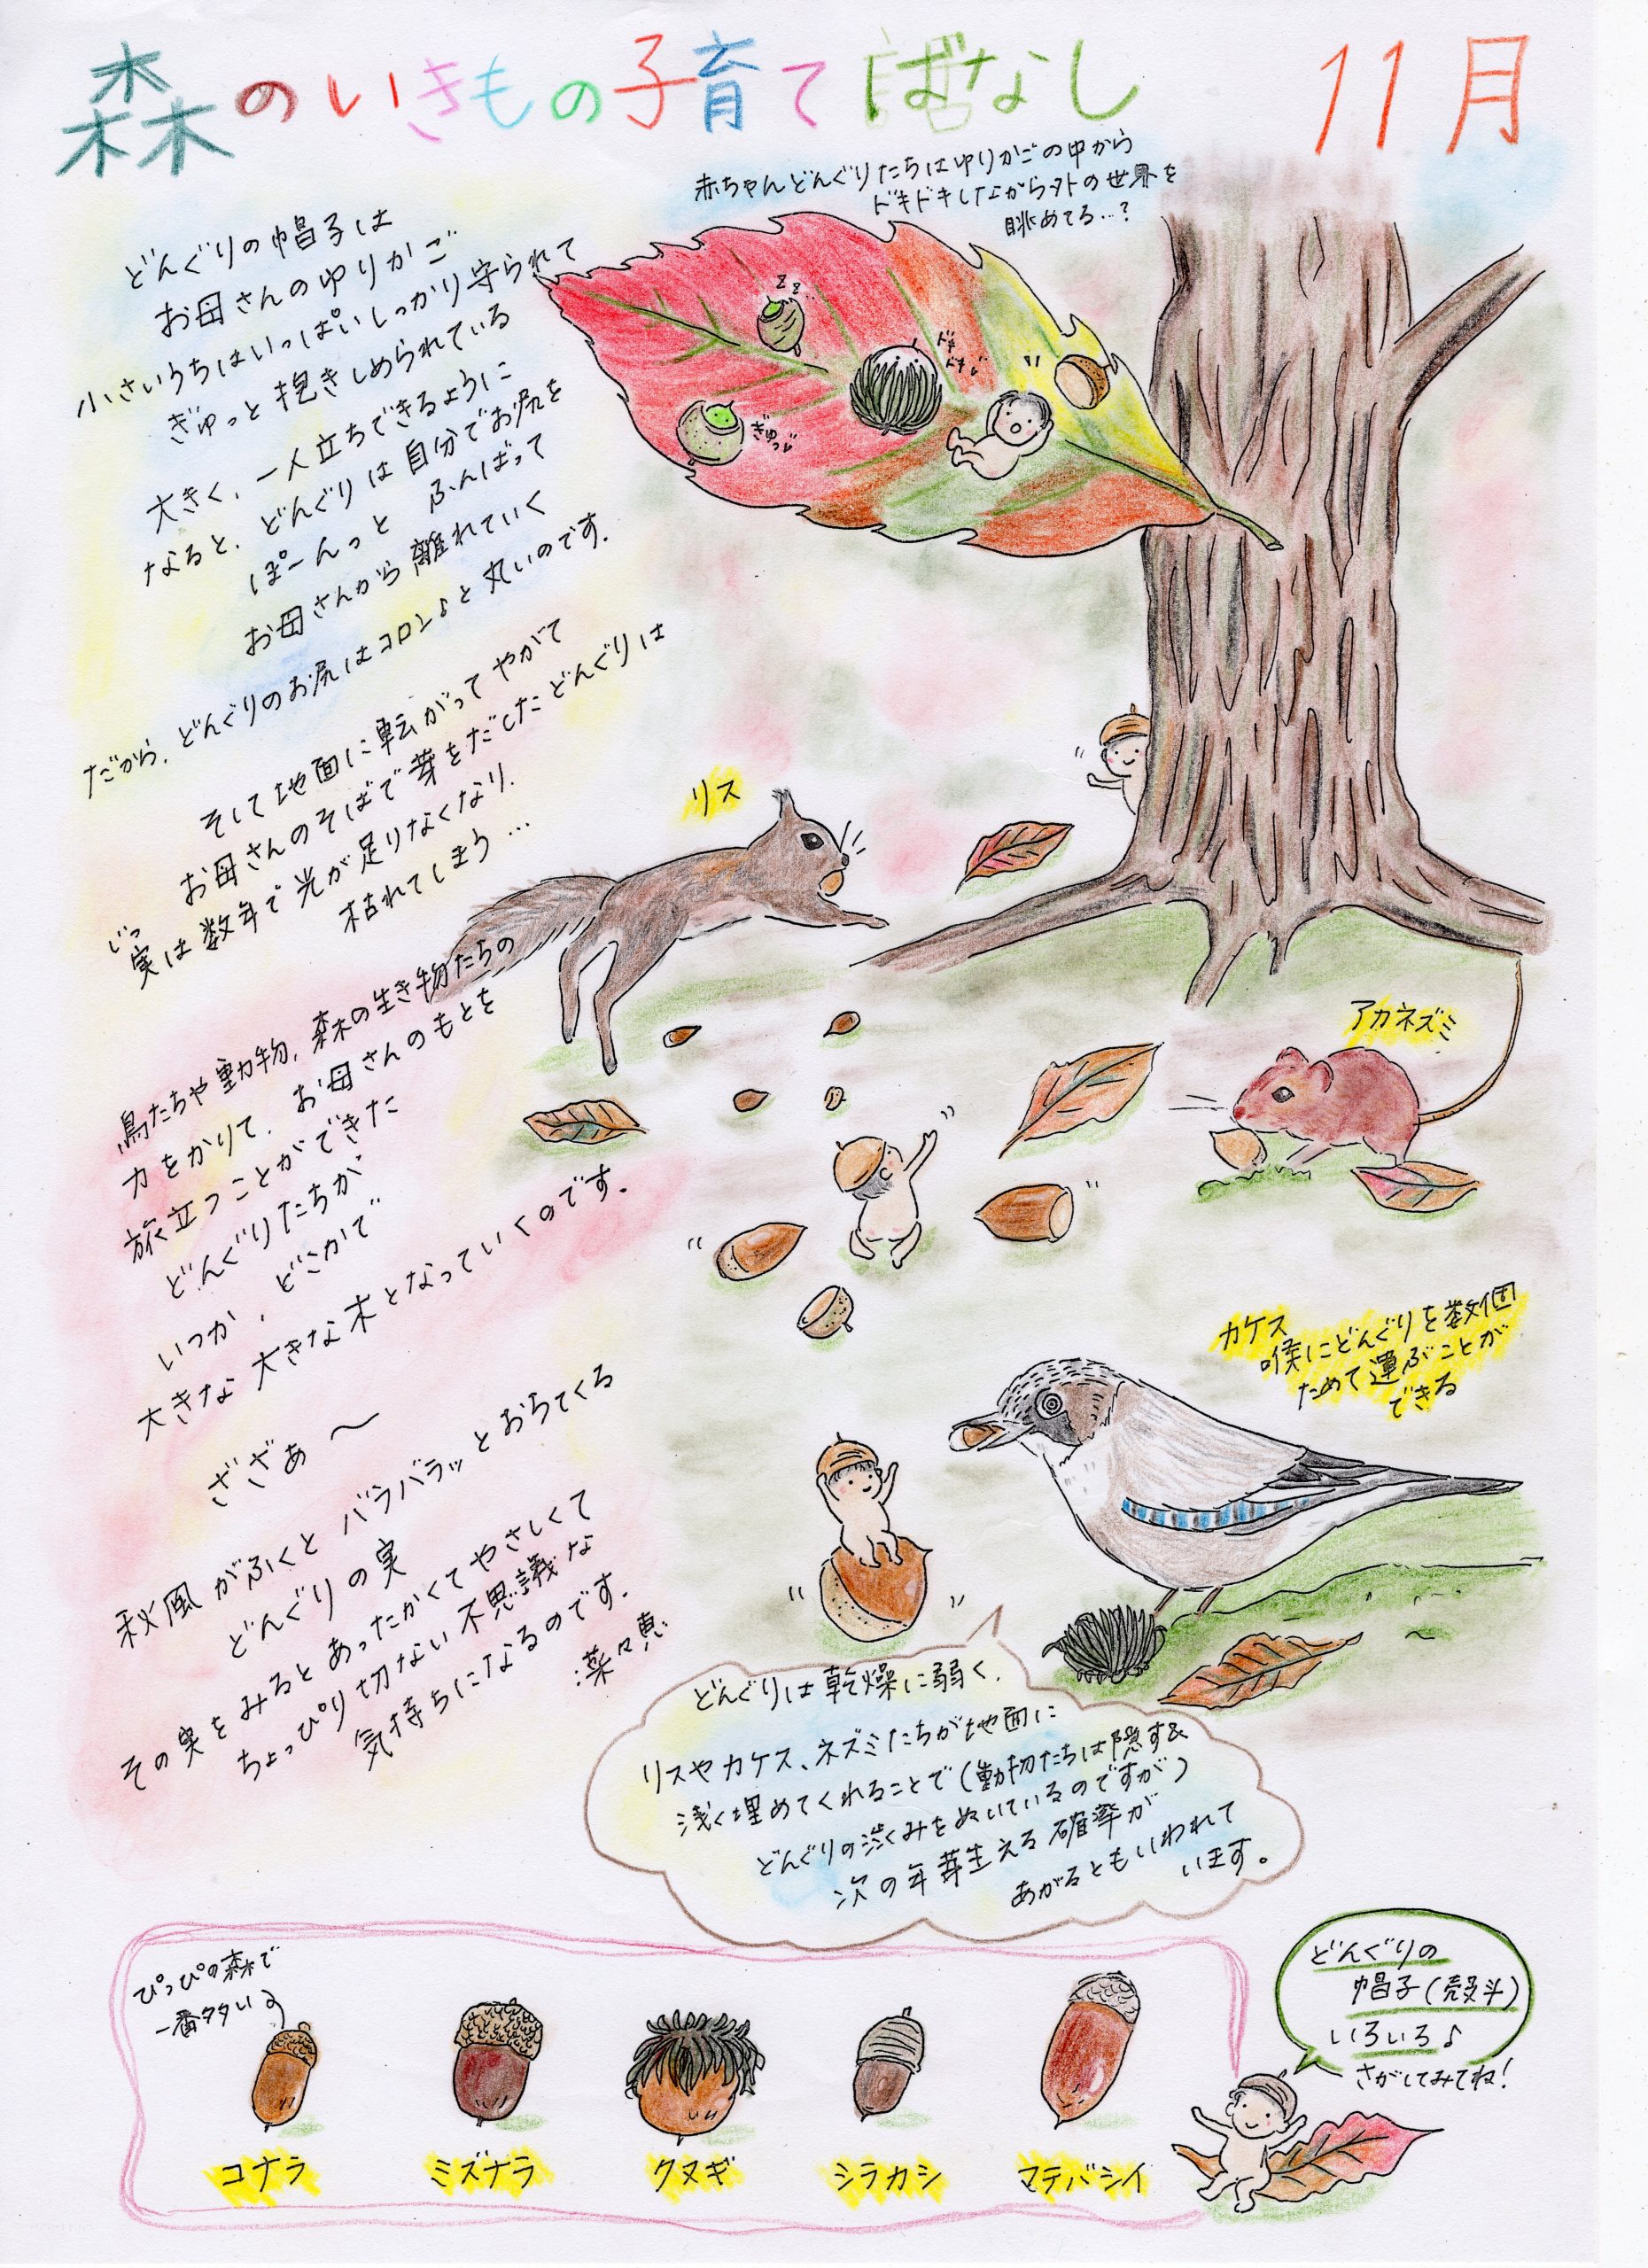 森のいきもの子育てばなし 11月
赤ちゃんどんぐりたちはゆりかごの中から
ドキドキしながら外の世界を
眺めてる…?
どんぐりの帽子は
お母さんのゆりかご
小さいうちはいっぱいしっかり守られて
ぎゅっと抱きしめられている
大きく、一人立ちできるように
なると、どんぐりは自分でお尻を
ふんばって
ぽーんっと
お母さんから離れていく
だから、どんぐりのお尻はコロン♪と丸いのです.
そして地面に転がってやがて
お母さんのそばで芽をだしたどんぐりは
じつ
実は数年で光が足りなくなり、
枯れてしまう…
鳥たちや動物、森の生き物たちの
力をかりて、お母さんのもとを
旅立つことができた
どんぐりたちが
いつか、どこかで
大きな大きな木となっていくのです.
ざざぁ〜
秋風がふくとバラバラッとおちてくる
どんぐりの実
その実をみるとあったかくてやさしくて
ちょっぴり切ない不思議な
気持ちになるのです.
菜々恵
zz…
ドキ
ドキ
ぎゅっ
リス
アカネズミ
カケス
喉にどんぐりを数個
ためて運ぶことが
できる
どんぐりは乾燥に弱く、
リスやカケス、ネズミたちが地面に
浅く埋めてくれることで(動物たちは隠す&
どんぐりの渋みをぬいているのですが)
次の年芽生える確率が
あがるともいわれて
います。
ぴっぴの森で
一番多い
コナラ
ミズナラ
クヌギ
シラカシ
マテバシイ
どんぐりの
帽子(殻斗)
いろいろ♪
さがしてみてね!